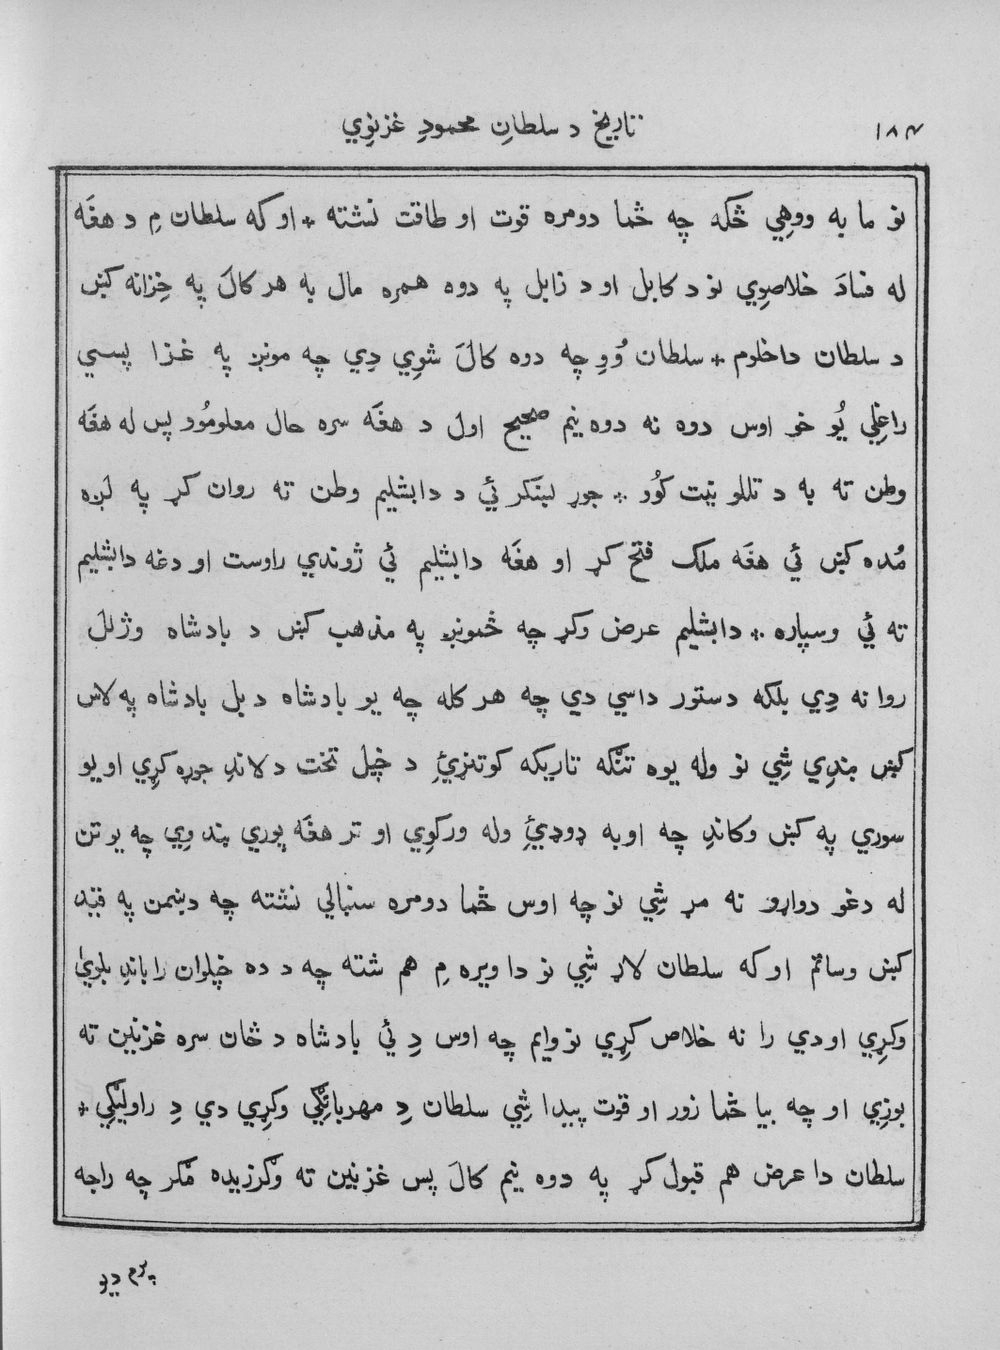 ١٨٣
تاريخ د سلطانِ محمودِ غزنوِي
نو ما به ووهِي ځکه چه ځما دومره قوت او طاقت نشته + او که سلطان مِ د هغَه
له فسادَ خلاصوِي نو د کابل او د زابل په دوه همره مال به هر کالَ په خِزانه کښ
د سلطان داخلوم + سلطان وُوِ چه دوه کالَ شوِي دِي چه مونږ په غزا پسي
راغلِي يُو خو اوس دوه نه دوه نيم صحيح اول د هغَه سره حال معلومُود پس له هغَه
وطن ته به د تللو نيت کوُو ؞ جوړ لښکر ئَي د دابشليم وطن ته روان کړ په لږه
مُده کښ ئي هغَه ملک فتح کړ او هغَه دابشليم ئي ژوندي راوست او دغه دابشليم
ته ئي وسپاره ؞ دابشليم عرض وکړ چه ځمونږ په مذهب کښ د بادشاه وژللَ
روا نه دِي بلکه دستور داسي دي چه هر کله چه يو بادشاه د بل بادشاه په لاس
کښ بندِي شِي نو وله يوه تنګه تاريکه کوتنړئِ د خپل تخت د لاندِ جوړه کړِي او يو
سوري په کښ وکاندِ چه اوبه ډوډيئِ وله ورکوِي او تر هغَه پوري بند وِي چه يو تن
له دغو دواړو نه مړ شِي نو چه اوس ځما دومره سنبالي نشته چه دښمن په قيد
کښ وساتم او که سلطان لاړ شِي نو دا ويره مِ هم شته چه د ده خپلوان راباندِ بلوىٰ
وکړِي او دي را نه خلاص کړِي نو وايم چه اوس دِ ئي بادشاه د ځان سره غزنين ته
بوزِي او چه بيا ځما زور او قوت پيدا شِي سلطان دِ مهربانګِي وکړِي دي دِ راوليګِي +
سلطان دا عرض هم قبول کړ په دوه نيم کالَ پس غزنين ته وګرزيده مګر چه راجه
پرم ديو